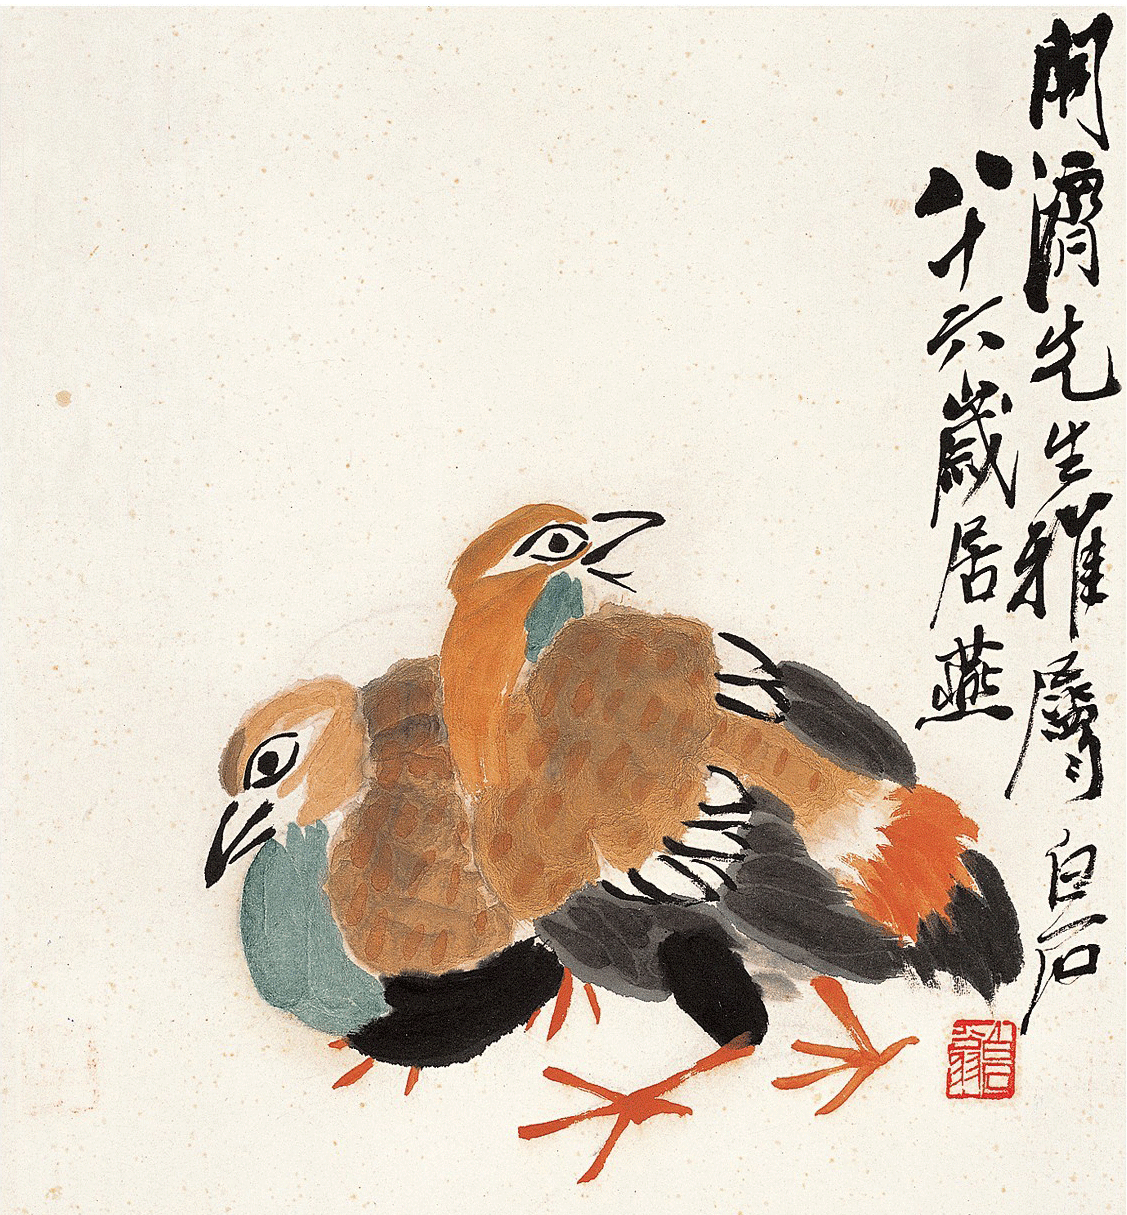 開濟先生雅屬 白石
八十六歲居燕
白石翁